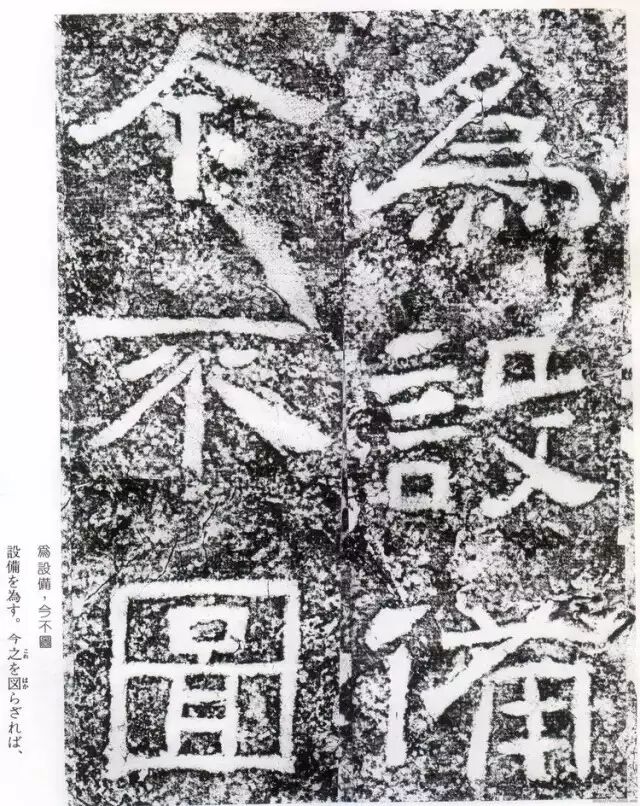 爲設備
今不圖
爲設備，今不圖
設備を為す。今之を図らざれば、
これ
はか